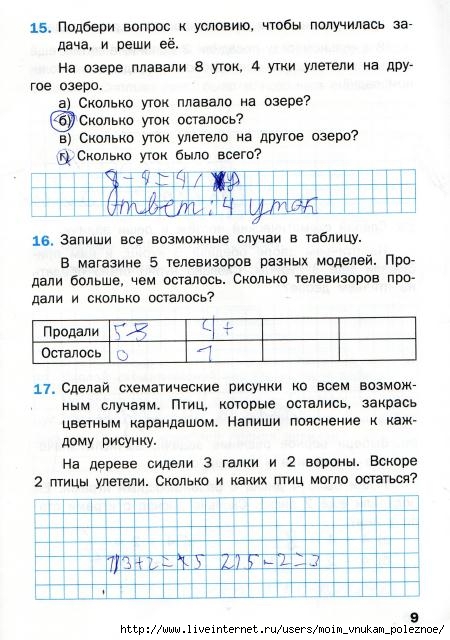 15. Подбери вопрос к условию, чтобы получилась за-
дача, и реши её.
На озере плавали 8 уток, 4 утки улетели на дру-
гое озеро.
а) Сколько уток плавало на озере?
б) Сколько уток осталось?
в) Сколько уток улетело на другое озеро?
г) Сколько уток было всего?
8-4=4
Ответ: 4 уток
16. Запиши все возможные случаи в таблицу.
В магазине 5 телевизоров разных моделей. Про-
дали больше, чем осталось. Сколько телевизоров про-
дали и сколько осталось?
Продали 5 4
Осталось 0 1
17. Сделай схематические рисунки ко всем возмож-
ным случаям. Птиц, которые остались, закрась
цветным карандашом. Напиши пояснение к каж-
дому рисунку.
На дереве сидели 3 галки и 2 вороны. Вскоре
2 птицы улетели. Сколько и каких птиц могло остаться?
1)3+2=5 2)5-2=3
9
http://www.liveinternet.ru/users/moim_vnukam_poleznoe/